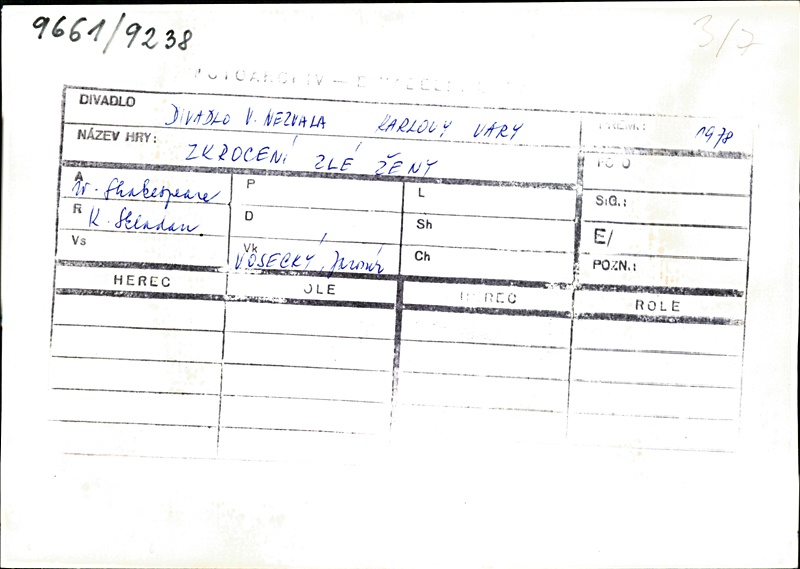 9661/9238
3/7
FOTOARCHIV —
DIVADLO DIVADLO V. NEZVALA KARLOVY VARY
PREM.: 1978
NÁZEV HRY: ZKROCENÍ ZLÉ ŽENY
FOTO
A W. Shakespeare
P
L
SIG.:
R K.
D
Sh
E/
Vs
Vk VOSECKÝ, Jaromír
Ch
POZN.:
HEREC
OLE
HEREC
ROLE